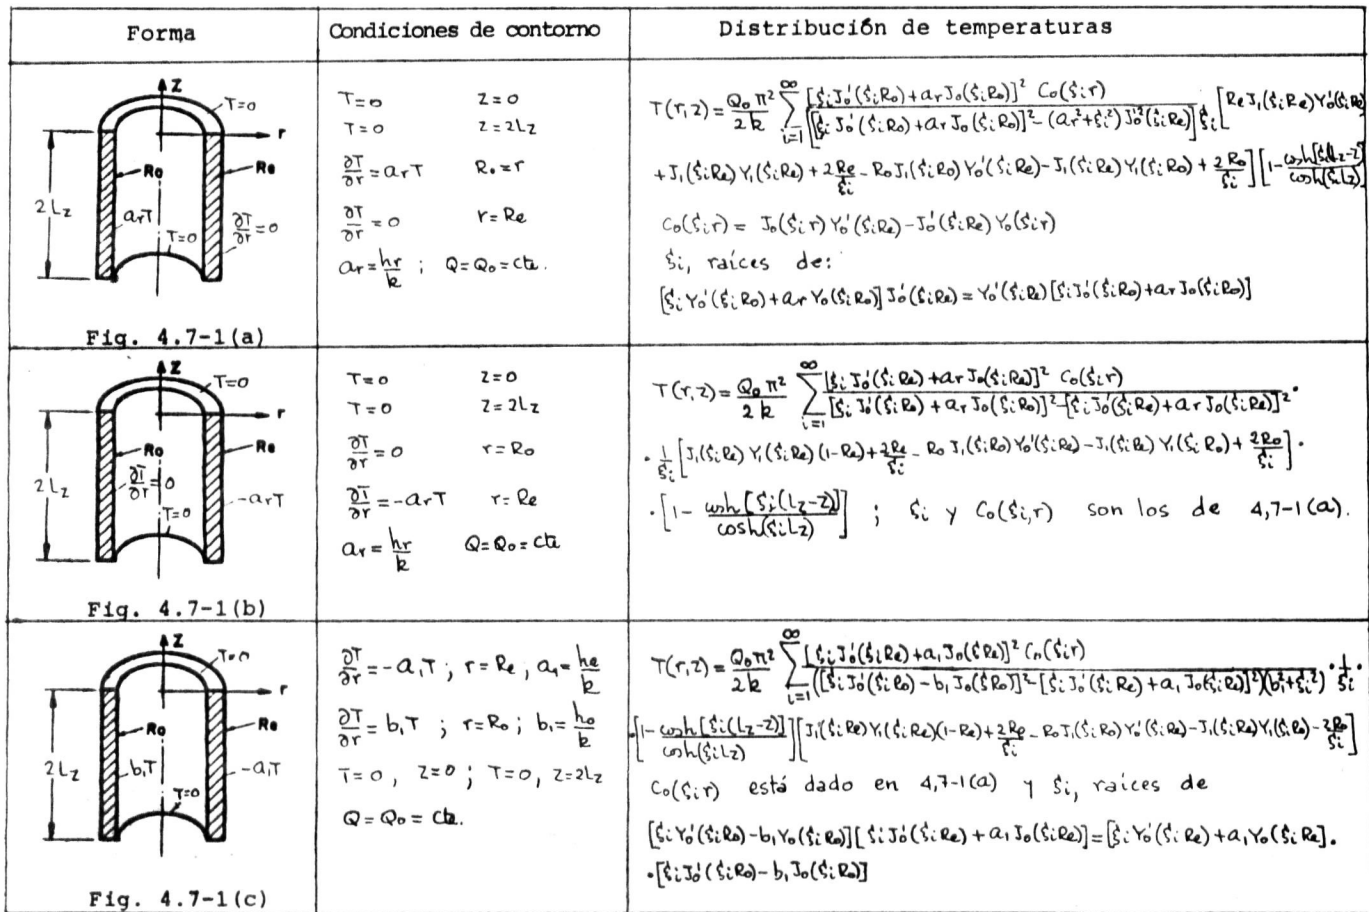 Forma
Condiciones de contorno
Distribución de temperaturas
Z
T=0
r
Ro
Re
2Lz
arT
∂T/∂r=0
T=0
Fig. 4.7-1(a)
T=0 z=0
T=0 z=2Lz
∂T/∂r=arT Ro=r
∂T/∂r=0 r=Re
ar=hr/k ; Q=Qo=cte.
T(r,z)= Qoπ²/2k ∑_{i=1}^{∞} [ξiJo'(ξiRo)+arJo(ξiRo)]² Co(ξir) / [[ξiJo'(ξiRo)+arJo(ξiRo)]²-(ar²+ξi²)Jo'²(ξiRe)]ξi [ReJ₁(ξiRe)Yo'(ξiRe)
+J₁(ξiRe)Y₁(ξiRe)+2Re/ξi-RoJ₁(ξiRo)Yo'(ξiRe)-J₁(ξiRe)Y₁(ξiRo)+2Ro/ξi][1-cosh[ξi(Lz-z)]/cosh(ξiLz)]
Co(ξir)= Jo(ξir)Yo'(ξiRe)-Jo'(ξiRe)Yo(ξir)
ξi, raíces de:
[ξiYo'(ξiRo)+arYo(ξiRo)]Jo'(ξiRe)=Yo'(ξiRe)[ξiJo'(ξiRo)+arJo(ξiRo)]
Z
T=0
r
Ro
Re
2Lz
∂T/∂r=0
-arT
T=0
Fig. 4.7-1(b)
T=0 z=0
T=0 z=2Lz
∂T/∂r=0 r=Ro
∂T/∂r=-arT r=Re
ar=hr/k Q=Qo=cte
T(r,z)= Qoπ²/2k ∑_{i=1}^{∞} [ξiJo'(ξiRe)+arJo(ξiRe)]² Co(ξir) / [ξiJo'(ξiRo)+arJo(ξiRo)]²-[ξiJo'(ξiRe)+arJo(ξiRe)]² ·
· 1/ξi [J₁(ξiRe)Y₁(ξiRe)(1-Re)+2Re/ξi-RoJ₁(ξiRo)Yo'(ξiRe)-J₁(ξiRe)Y₁(ξiRo)+2Ro/ξi] ·
·[1-cosh[ξi(Lz-z)]/cosh(ξiLz)] ; ξi y Co(ξi,r) son los de 4,7-1(a).
Z
T=0
r
Ro
Re
2Lz
b₁T
-a₁T
T=0
Fig. 4.7-1(c)
∂T/∂r=-a₁T ; r=Re ; a₁=he/k
∂T/∂r=b₁T ; r=Ro ; b₁=ho/k
T=0, z=0 ; T=0, z=2Lz
Q=Qo=cte.
T(r,z)= Qoπ²/2k ∑_{i=1}^{∞} [ξiJo'(ξiRe)+a₁Jo(ξiRe)]² Co(ξir) / ([ξiJo'(ξiRo)-b₁Jo(ξRo)]²-[ξiJo'(ξiRe)+a₁Jo(ξiRe)]²)(b₁²+ξi²) · 1/ξi
·[1-cosh[ξi(Lz-z)]/cosh(ξiLz)][J₁(ξiRe)Y₁(ξiRe)(1-Re)+2Re/ξi-RoJ₁(ξiRo)Yo'(ξiRe)-J₁(ξiRe)Y₁(ξiRo)-2Ro/ξi]
Co(ξir) está dado en 4,7-1(a) y ξi, raíces de
[ξiYo'(ξiRo)-b₁Yo(ξiRo)][ξiJo'(ξiRe)+a₁Jo(ξiRe)]=[ξiYo'(ξiRe)+a₁Yo(ξiRe].
·[ξiJo'(ξiRo)-b₁Jo(ξiRo)]